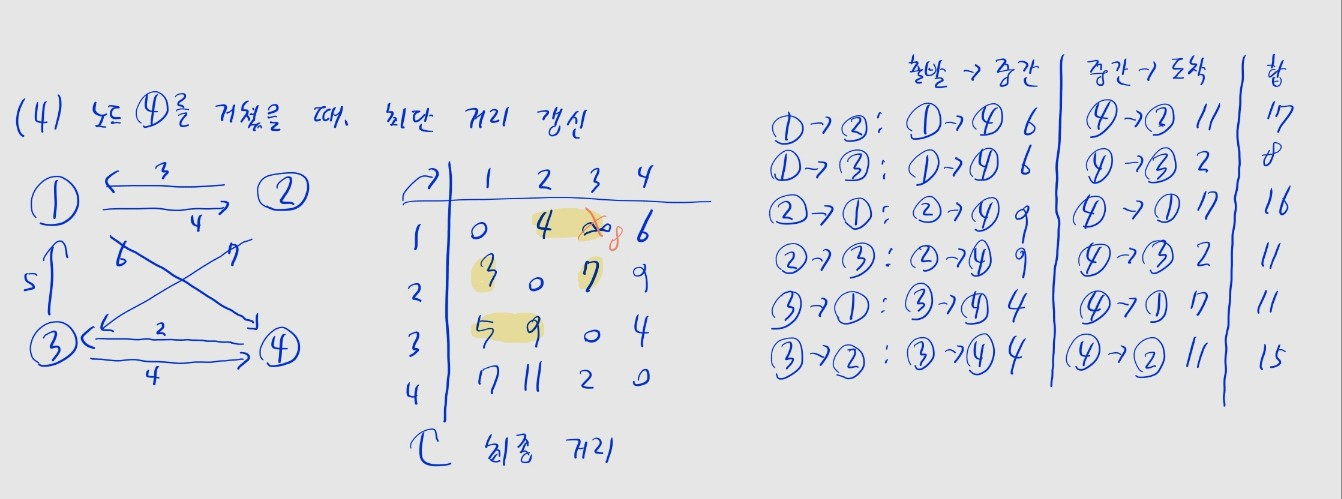 (4) 노드 ④를 거쳤을 때, 최단 거리 갱신
① ② 3 4
5 6 7
③ ④ 2 4
1 2 3 4
1 0 4 ∞ 8 6
2 3 0 7 9
3 5 9 0 4
4 7 11 2 0
최종 거리
출발 → 중간 중간 → 도착 합
①→②: ①→④ 6 ④→② 11 17
①→③: ①→④ 6 ④→③ 2 8
②→①: ②→④ 9 ④→① 7 16
②→③: ②→④ 9 ④→③ 2 11
③→①: ③→④ 4 ④→① 7 11
③→②: ③→④ 4 ④→② 11 15